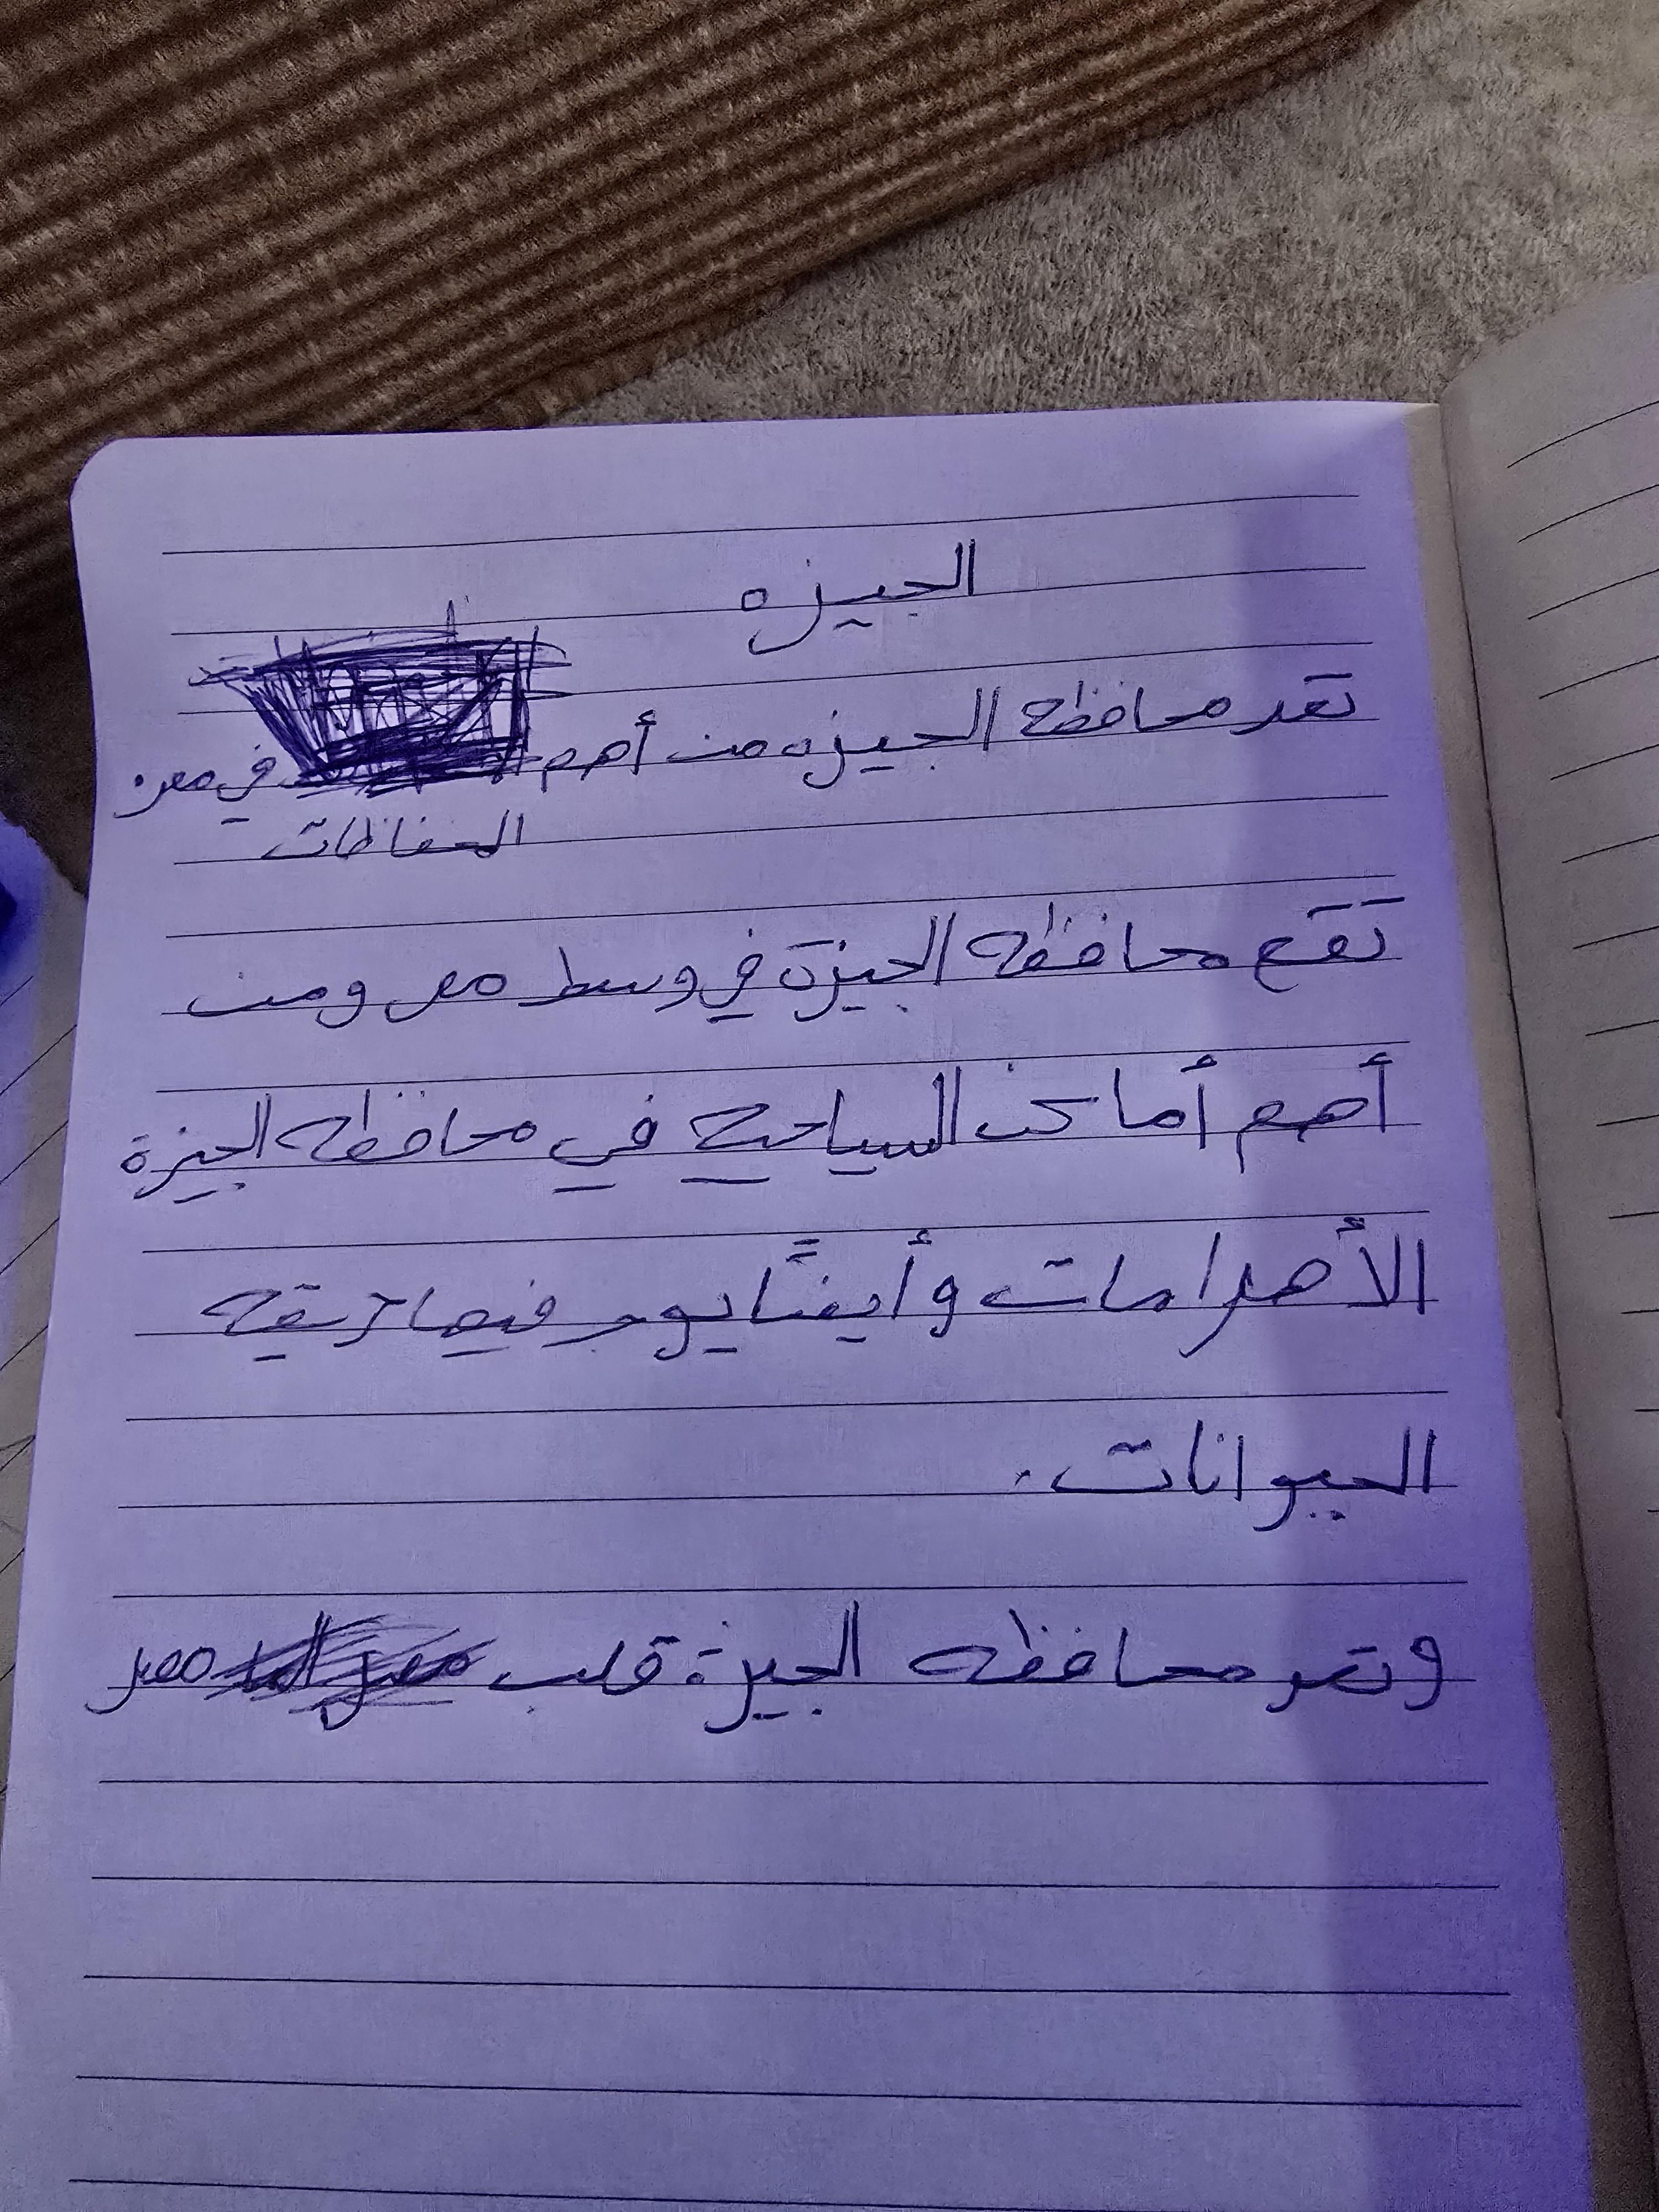 الجيزه
تعد محافظة الجيزه من أهم في مصر
المفاظات
تقع محافظه الجيزة في وسط مصر ومن
أهم أماكن السياحية في محافظه الجيزة
الأهرامات وأيضًا يوجد فيها حديقه
الحيوانات.
وتعد محافظه الجيزة قلب مصر